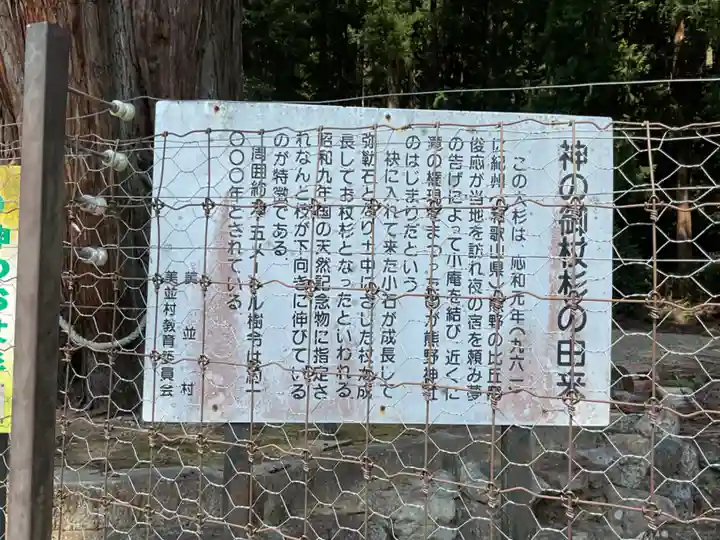 神の御杖杉の由来
この大杉は、応和元年(九六一
に紀州(和歌山県)熊野の比丘尼
俊応が当地を訪れ夜の宿を頼み夢
の告げによって小庵を結び近くに
の権現をまつったのが熊野神社
のはじまりだという
袂に入れて来た小石が成長して
弥勒石となり土中にさした杖が成
長してお杖杉となったといわれる
昭和九年国の天然記念物に指定さ
れなんと枝が下向きに伸びている
のが特徴である
周囲約 五メートル樹令は約一
〇〇〇年とされている
美並村
美並村教育委員会